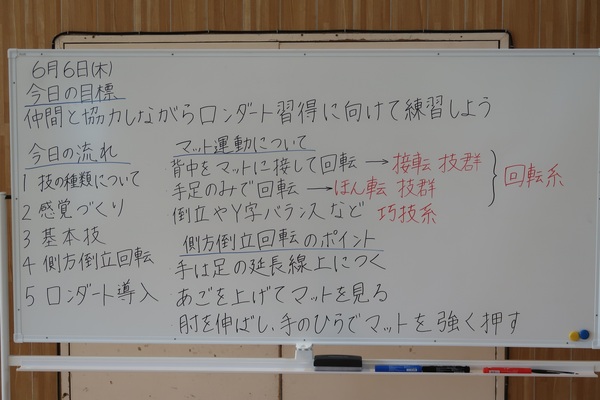 6月6日(木)
今日の目標
仲間と協力しながらロンダート習得に向けて練習しよう
今日の流れ
1 技の種類について
2 感覚づくり
3 基本技
4 側方倒立回転
5 ロンダート導入
マット運動について
背中をマットに接して回転 → 接転技群
手足のみで回転 → ほん転技群
回転系
倒立やY字バランスなど 巧技系
側方倒立回転のポイント
手は足の延長線上につく
あごを上げてマットを見る
肘を伸ばし、手のひらでマットを強く押す